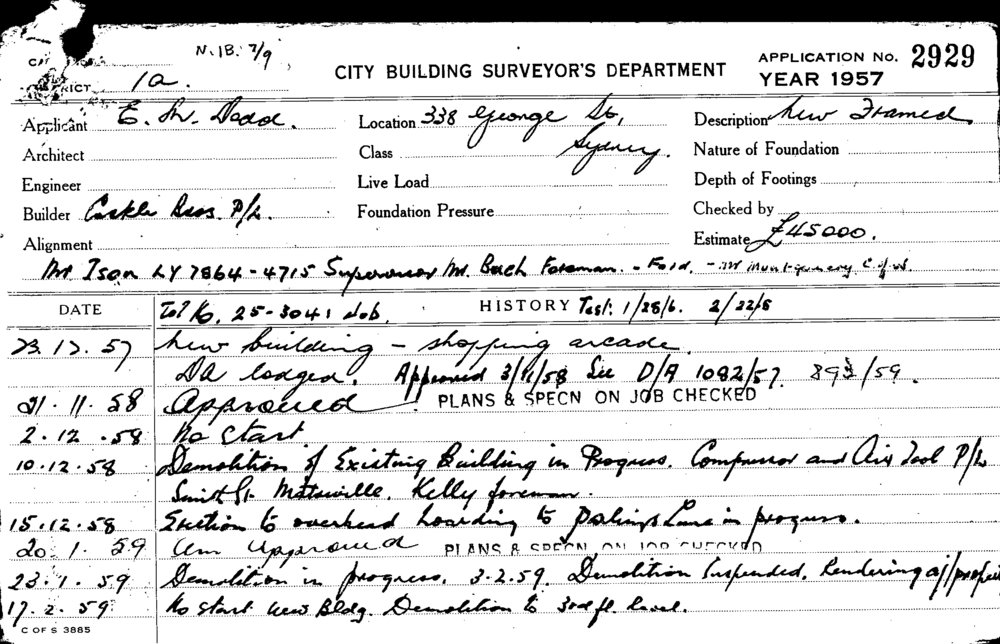 N.1B. 7/9
1a.
CITY BUILDING SURVEYOR'S DEPARTMENT
APPLICATION No. 2929
YEAR 1957
Applicant E. W. Dodd. Location 338 George St, Description New Framed
Architect Class Sydney. Nature of Foundation
Engineer Live Load Depth of Footings
Builder Bros. P/L. Foundation Pressure Checked by
Alignment Estimate £45000.
Mr Ison LY 7864-4715 Supervisor Mr. Bach Foreman. - Ford. - Mr Montgomery C of W.
DATE Tel No. 25-3041 Job. HISTORY Test: 1/28/6. 2/22/8
23.12.57 New building - shopping arcade
DA lodged. Approved 3/11/58 See D/A 1082/57. /59.
21.11.58 Approved PLANS & SPECN ON JOB CHECKED
2.12.58 No Start
10.12.58 Demolition of Existing Building in Progress. Compressor and Air Tool P/L
Smith St. Kelly foreman.
15.12.58 Erection to overhead hoarding to Palings Lane in progress.
20.1.59 Am approved PLANS & SPECN ON JOB CHECKED
23.1.59 Demolition in progress. 3.2.59. Demolition Suspended. Rendering adj/
17.2.59 No start new Bldg. Demolition to 3rd fl. level.
C OF S 3885